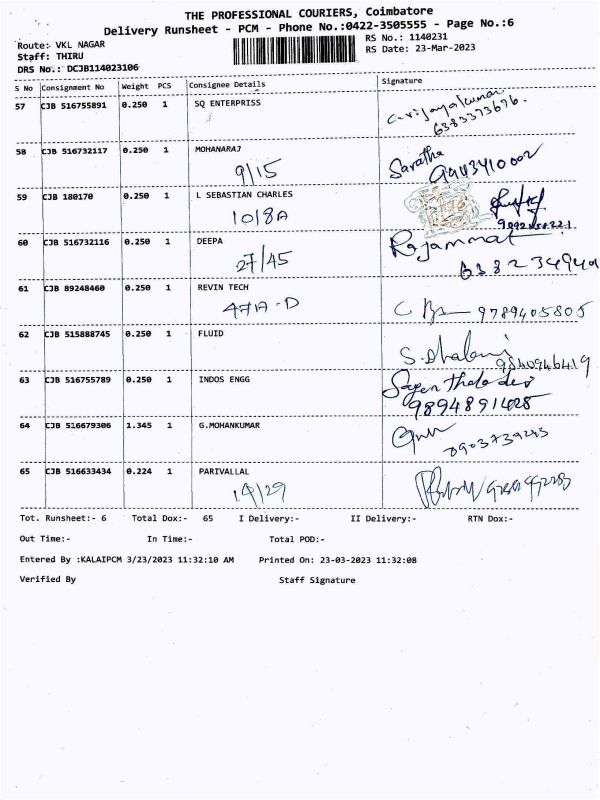 THE PROFESSIONAL COURIERS, Coimbatore
Delivery Runsheet - PCM - Phone No.:0422-3505555 - Page No.:6
Route: VKL NAGAR
RS No.: 1140231
Staff: THIRU
RS Date: 23-Mar-2023
DRS No.: DCJB114023106
S No Consignment No Weight PCS Consignee Details Signature
57 CJB 516755891 0.250 1 SQ ENTERPRISS C. Vijayakumar
6383373696.
58 CJB 516732117 0.250 1 MOHANARAJ Saratha
9/15 9943410002
59 CJB 180170 0.250 1 L SEBASTIAN CHARLES
10/8A
60 CJB 516732116 0.250 1 DEEPA Rajammal
27/45
61 CJB 89248460 0.250 1 REVIN TECH
47A-D 9789405805
62 CJB 515888745 0.250 1 FLUID
9840946419
63 CJB 516755789 0.250 1 INDOS ENGG
64 CJB 516679306 1.345 1 G.MOHANKUMAR
65 CJB 516633434 0.224 1 PARIVALLAL
Tot. Runsheet:- 6 Total Dox:- 65 I Delivery:- II Delivery:- RTN Dox:-
Out Time:- In Time:- Total POD:-
Entered By :KALAIPCM 3/23/2023 11:32:10 AM Printed On: 23-03-2023 11:32:08
Verified By Staff Signature